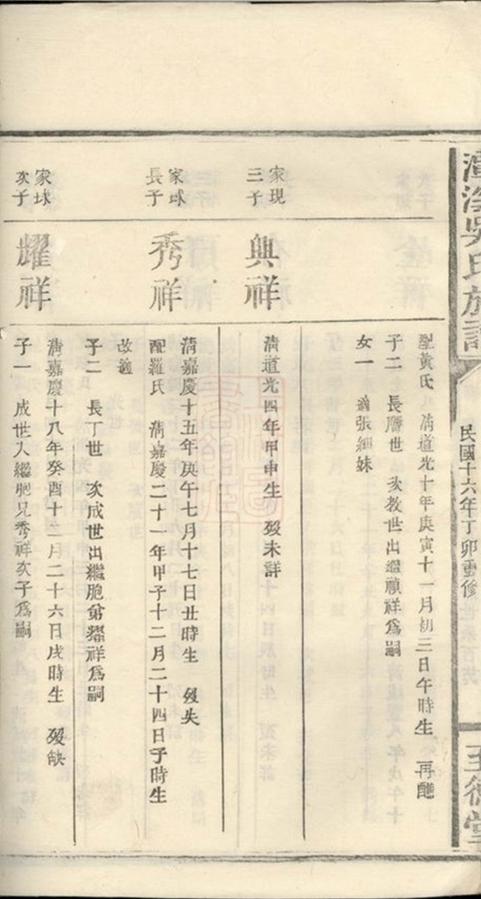 吳氏族譜
民國十六年丁卯重修
至德堂
黃氏 清道光十年庚寅十一月初三日午時生 再醮
子二 長世 次教世出繼祥爲嗣
女一 適張細妹
家現
三子
興祥
清道光四年甲申生 歿未詳
家球
長子
秀祥
清嘉慶十五年庚午七月十七日丑時生 歿失
配羅氏 清嘉慶二十一年甲子十二月二十四日子時生
改適
子二 長丁世 次成世出繼胞弟耀祥爲嗣
家球
次子
耀祥
清嘉慶十八年癸酉十二月二十六日戌時生 歿缺
子一 成世入繼胞兄秀祥次子爲嗣